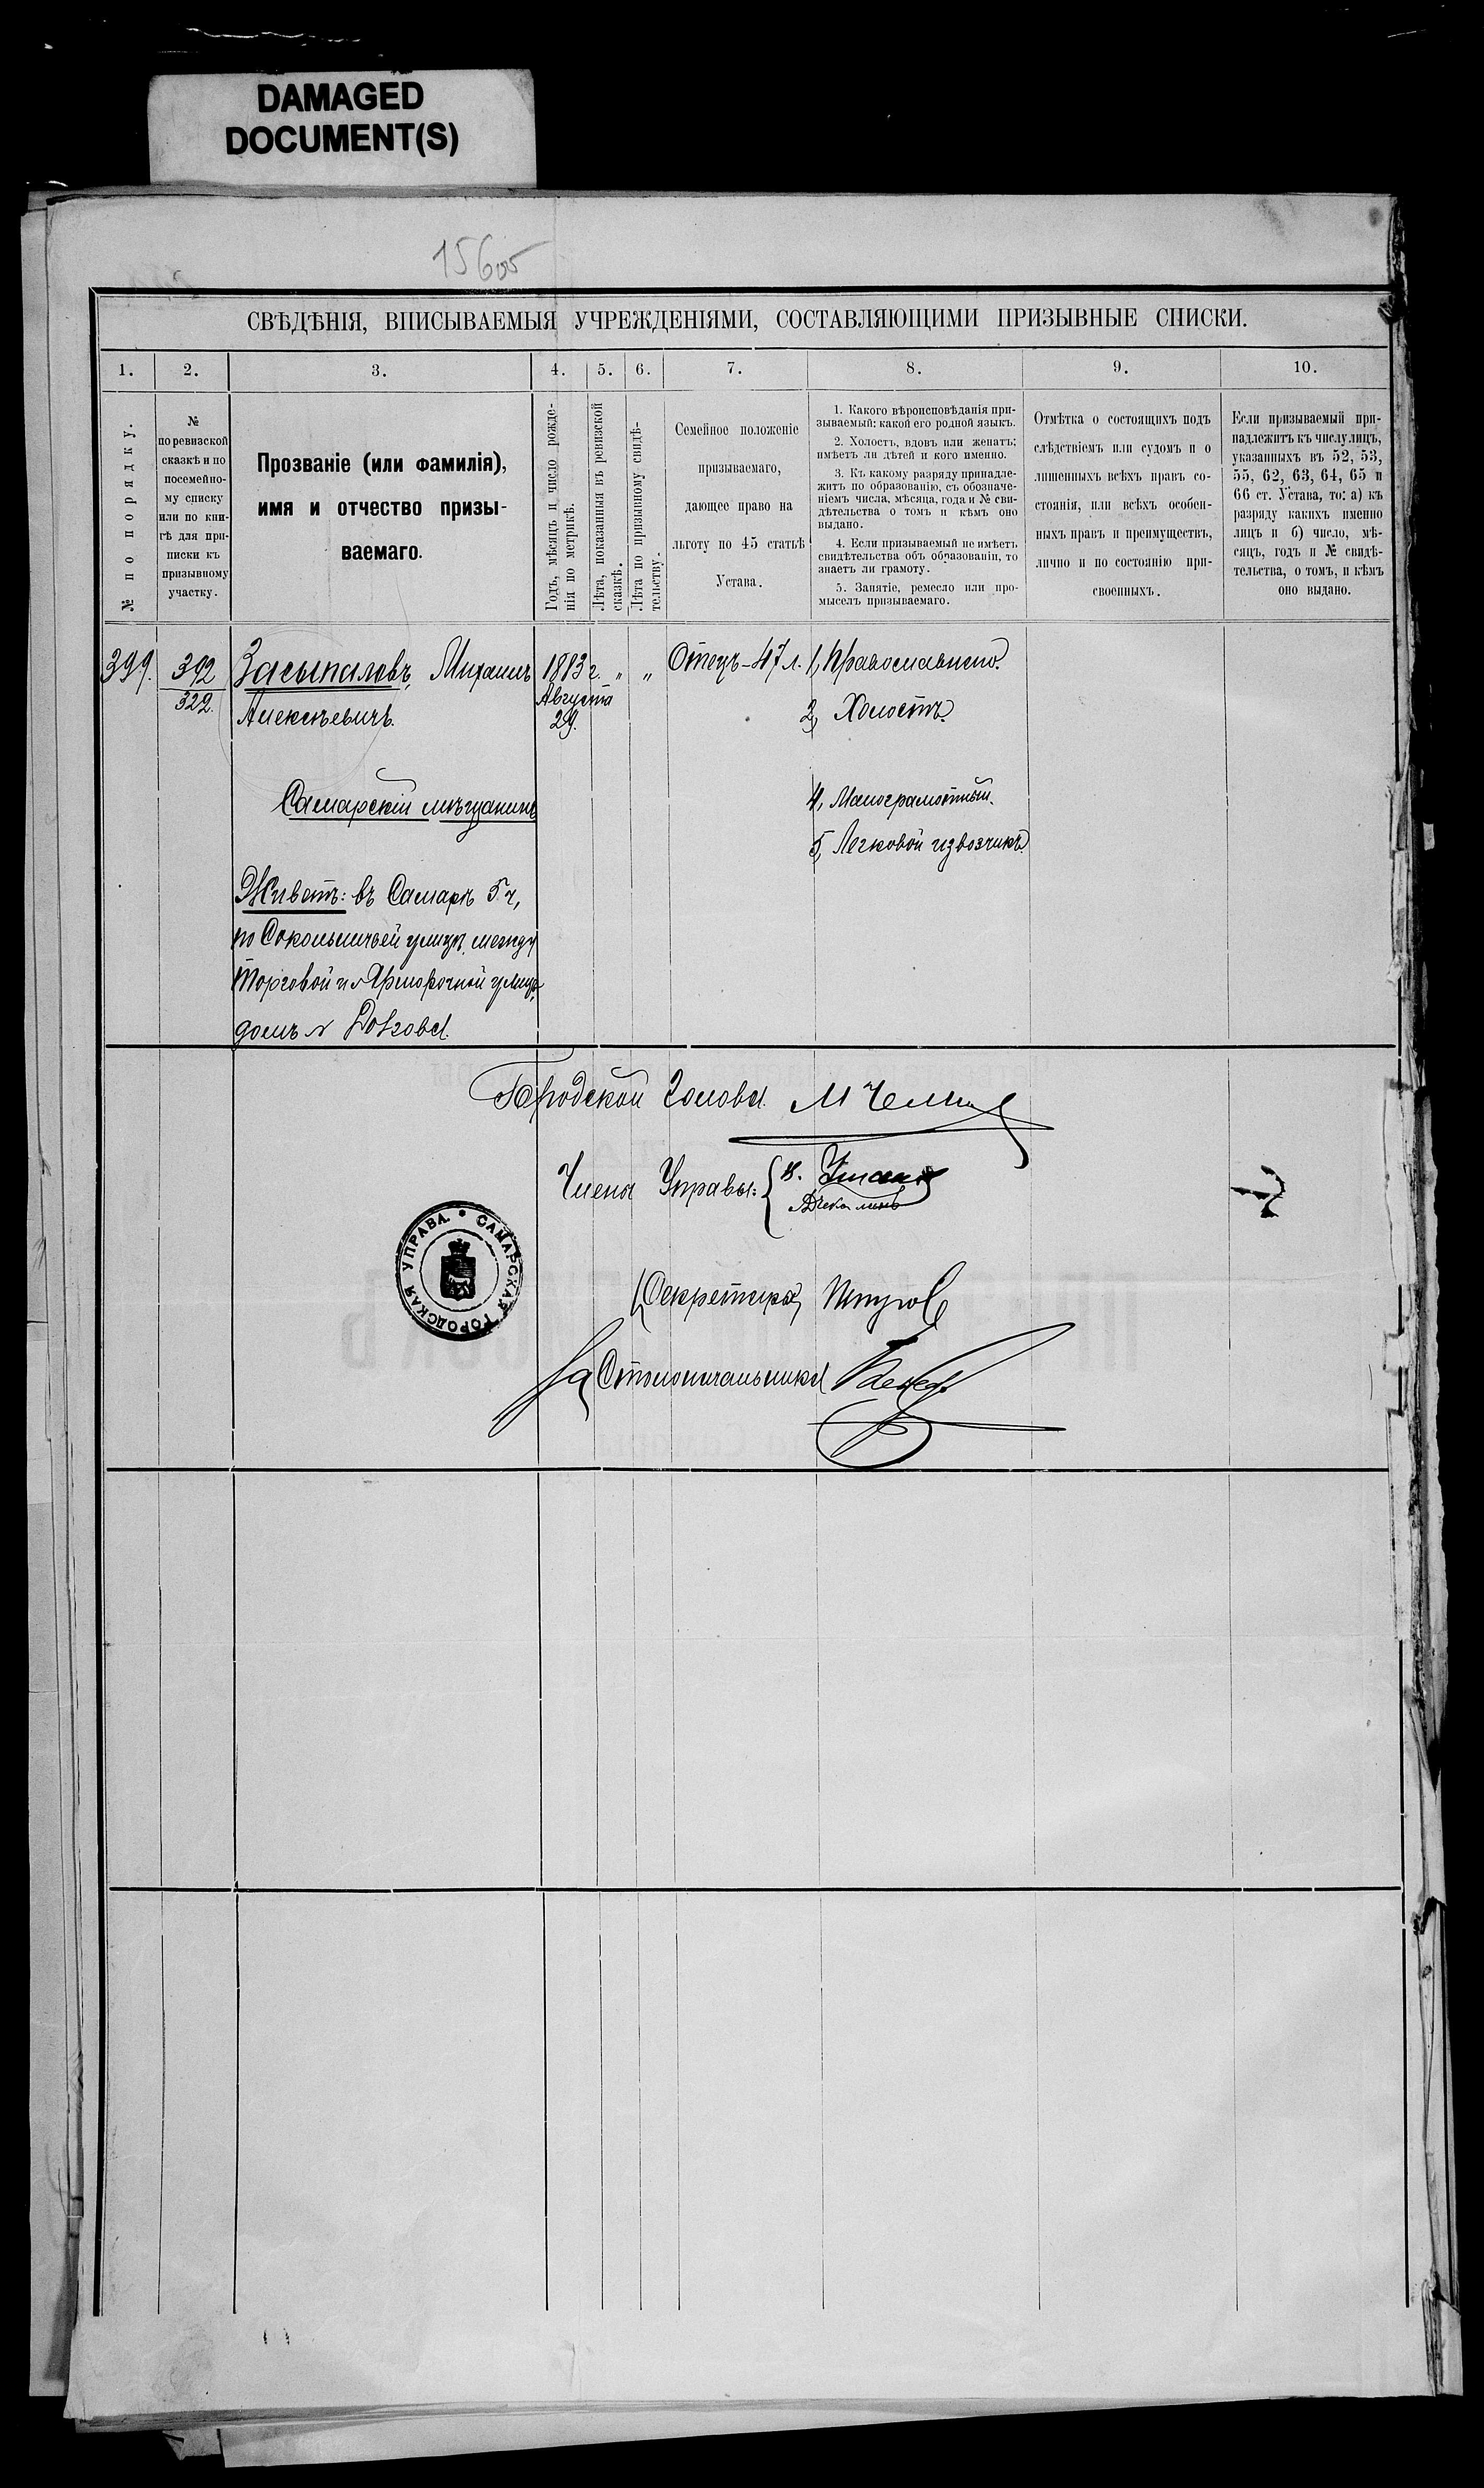 DAMAGED
DOCUMENT(S)
15605
СВѢДѢНІЯ, ВПИСЫВАЕМЫЯ УЧРЕЖДЕНІЯМИ, СОСТАВЛЯЮЩИМИ ПРИЗЫВНЫЕ СПИСКИ.
1. 2. 3. 4. 5. 6. 7. 8. 9. 10.
№ по порядку.
№
по ревизской
сказкѣ и по
посемейно-
му списку
или по кни-
гѣ для при-
писки къ
призывному
участку.
Прозваніе (или фамилія),
имя и отчество призы-
ваемаго.
Годъ, мѣсяцъ и число рожде-
нія по метрикѣ.
Лѣта, показанныя въ ревизской
сказкѣ.
Лѣта по призывному свидѣ-
тельству.
Семейное положеніе
призываемаго,
дающее право на
льготу по 45 статьѣ
Устава.
1. Какого вѣроисповѣданія при-
зываемый: какой его родной языкъ.
2. Холостъ, вдовъ или женатъ;
имѣетъ ли дѣтей и кого именно.
3. Къ какому разряду принадле-
житъ по образованію, съ обозначе-
ніемъ числа, мѣсяца, года и № сви-
дѣтельства о томъ и кѣмъ оно
выдано.
4. Если призываемый не имѣетъ
свидѣтельства объ образованіи, то
знаетъ ли грамоту.
5. Занятіе, ремесло или про-
мыселъ призываемаго.
Отмѣтка о состоящихъ подъ
слѣдствіемъ или судомъ и о
лишенныхъ всѣхъ правъ со-
стоянія, или всѣхъ особен-
ныхъ правъ и преимуществъ,
лично и по состоянію при-
своенныхъ.
Если призываемый при-
надлежитъ къ числу лицъ,
указанныхъ въ 52, 53,
55, 62, 63, 64, 65 и
66 ст. Устава, то: а) къ
разряду какихъ именно
лицъ и б) число, мѣ-
сяцъ, годъ и № свидѣ-
тельства, о томъ, и кѣмъ
оно выдано.
399. 392 Засыпаловъ, Михаилъ 1883 г. " " Отецъ - 47 л. 1, Православнаго.
322. Алексѣевичъ. Августа 2, Холостъ.
29.
Самарскій мѣщанинъ 4, Малограмотный.
5, Легковой извозчикъ.
Живетъ: въ Самарѣ 5 ч,
по Сокольничьей улицѣ, между
Торговой и Ярмарочной улицъ,
домъ
Городской Голова
Члены Управы:
Секретарь
За Столоначальника
САМАРСКАЯ ГОРОДСКАЯ УПРАВА.